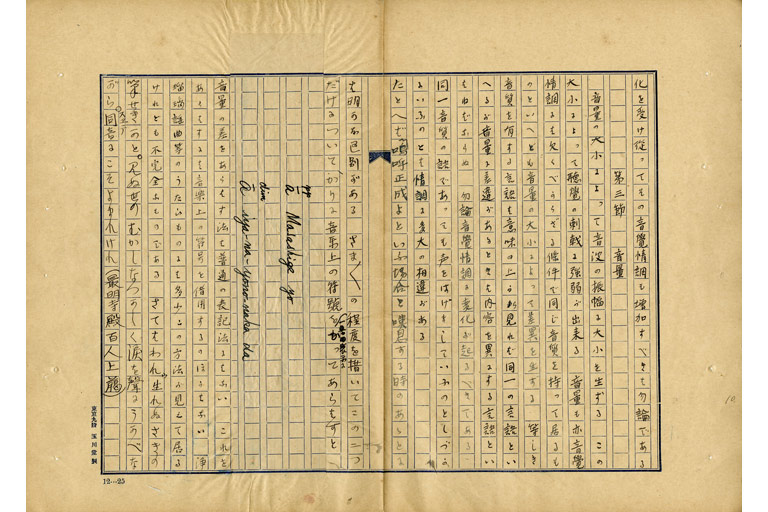 化を受け従つてその音覺情調も増加すべきも勿論である
第三節 音量
音量の大小によつて音波の振幅も大小を生ずる この
大小によつて聽覺の刺戟に強弱が出来る 音量も亦音覺
情調に欠くべからざる條件で同じ音質を持つて居るも
のといへども音量の大小によつて差異を生ずる 等しき
音質を有する言語も意味の上から見れば同一の言語とい
へるが音量に差違があるときは内容を異にする言語とい
勿論音覺情調に変化が起るべきである
同一音質の語であつても声をはげましていふのとしづか
にいふのとは情調に多大の相違がある
たとへば嗚呼正成よといふ場合を嘆息する時のあゝとは
も明かな区別がある さま〴〵の程度を措いてこの二つ
だけについてかりに音楽上の符號を つてあらはすと
pp
ā Masashige yo
dim
ā iya-na-yononaka da
音量の差をあらはす法は普通の表記法にはない これを
あらはすには音楽上の符号を借用するのほかはない 浄
瑠璃謡曲等のうたひものにも多少この方法が見えて居る
けれども不完全なものである さてもわれ生れぬさきの
筆のせきあと見ぬ世のむかしなつかしく涙に聲
から同音にこそよまれけれ(最明寺殿百人上﨟)
東京九段 玉川堂製
12—25
10